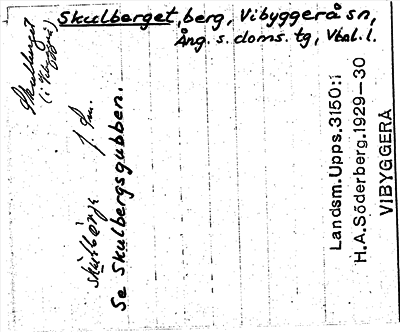 Skulberget, berg, Vibyggerå sn,
Ång. s. doms. tg, Vbtl. l.
Skulberget
skulbärje
Se Skulbergsgubben.
Landsm. Upps. 3150:1
H.A. Söderberg. 1929-30
VIBYGGERÅ